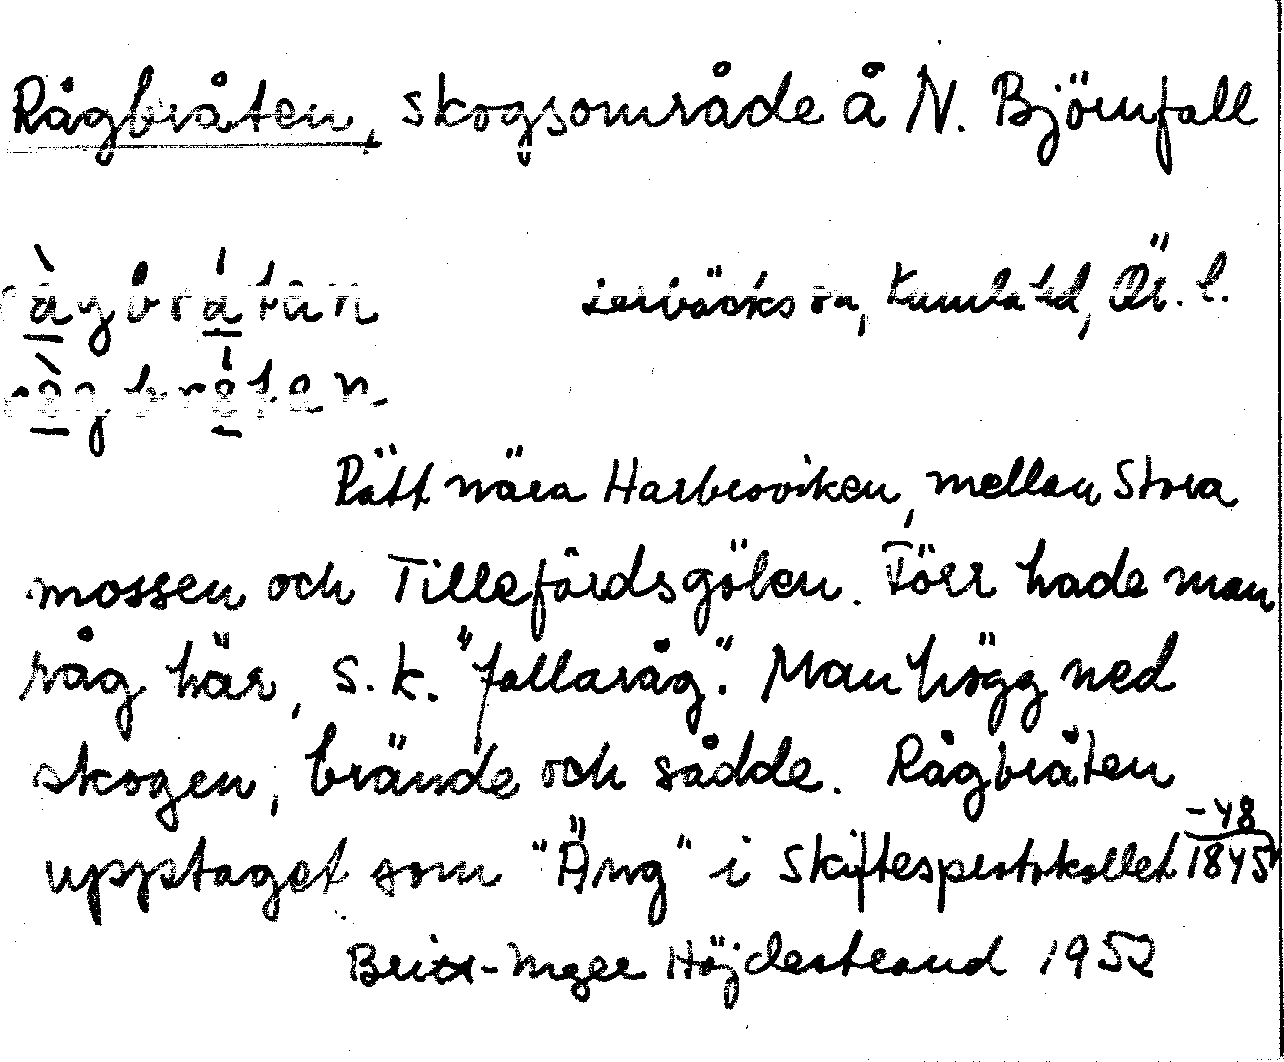 Rågbråten, skogsområde å N. Björnfall
rågbråtan Lerbäcks sn, Kumla hd, Ör. l.
rågbråtan
Rätt nära Harbroviken, mellan Stora
mossen och Tillefärdsgölen. Förr hade man
råg här, s. k. "fallaråg". Man högg ned
skogen, brände och sådde. Rågbråten
upptaget som "Äng" i Skiftesprotokollet 1845-48
Britt-Inger Höjdestrand 1952